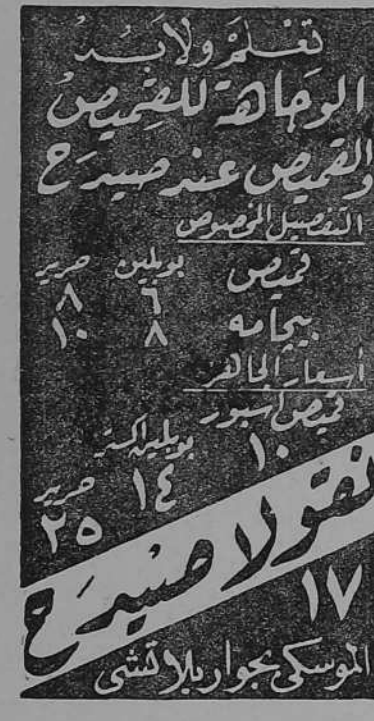 تعلم ولا بد
الوجاهة للقميص
والقميص عند صيدح
التفصيل المخصوص
بوبلين حرير
قميص ٦ ٨
بيجامه ٨ ١٠
أسعار الجاهز
قميص سبور ١٠
بوبلين اكسترا ١٤
حرير ٢٥
نقولا صيدح
١٧
الموسكى بجوار بلاتشى